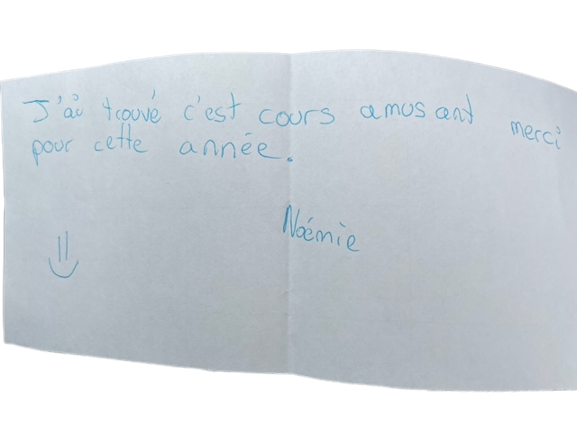 J'ai trouvé c'est cours amusant merci
pour cette année.
Noémie